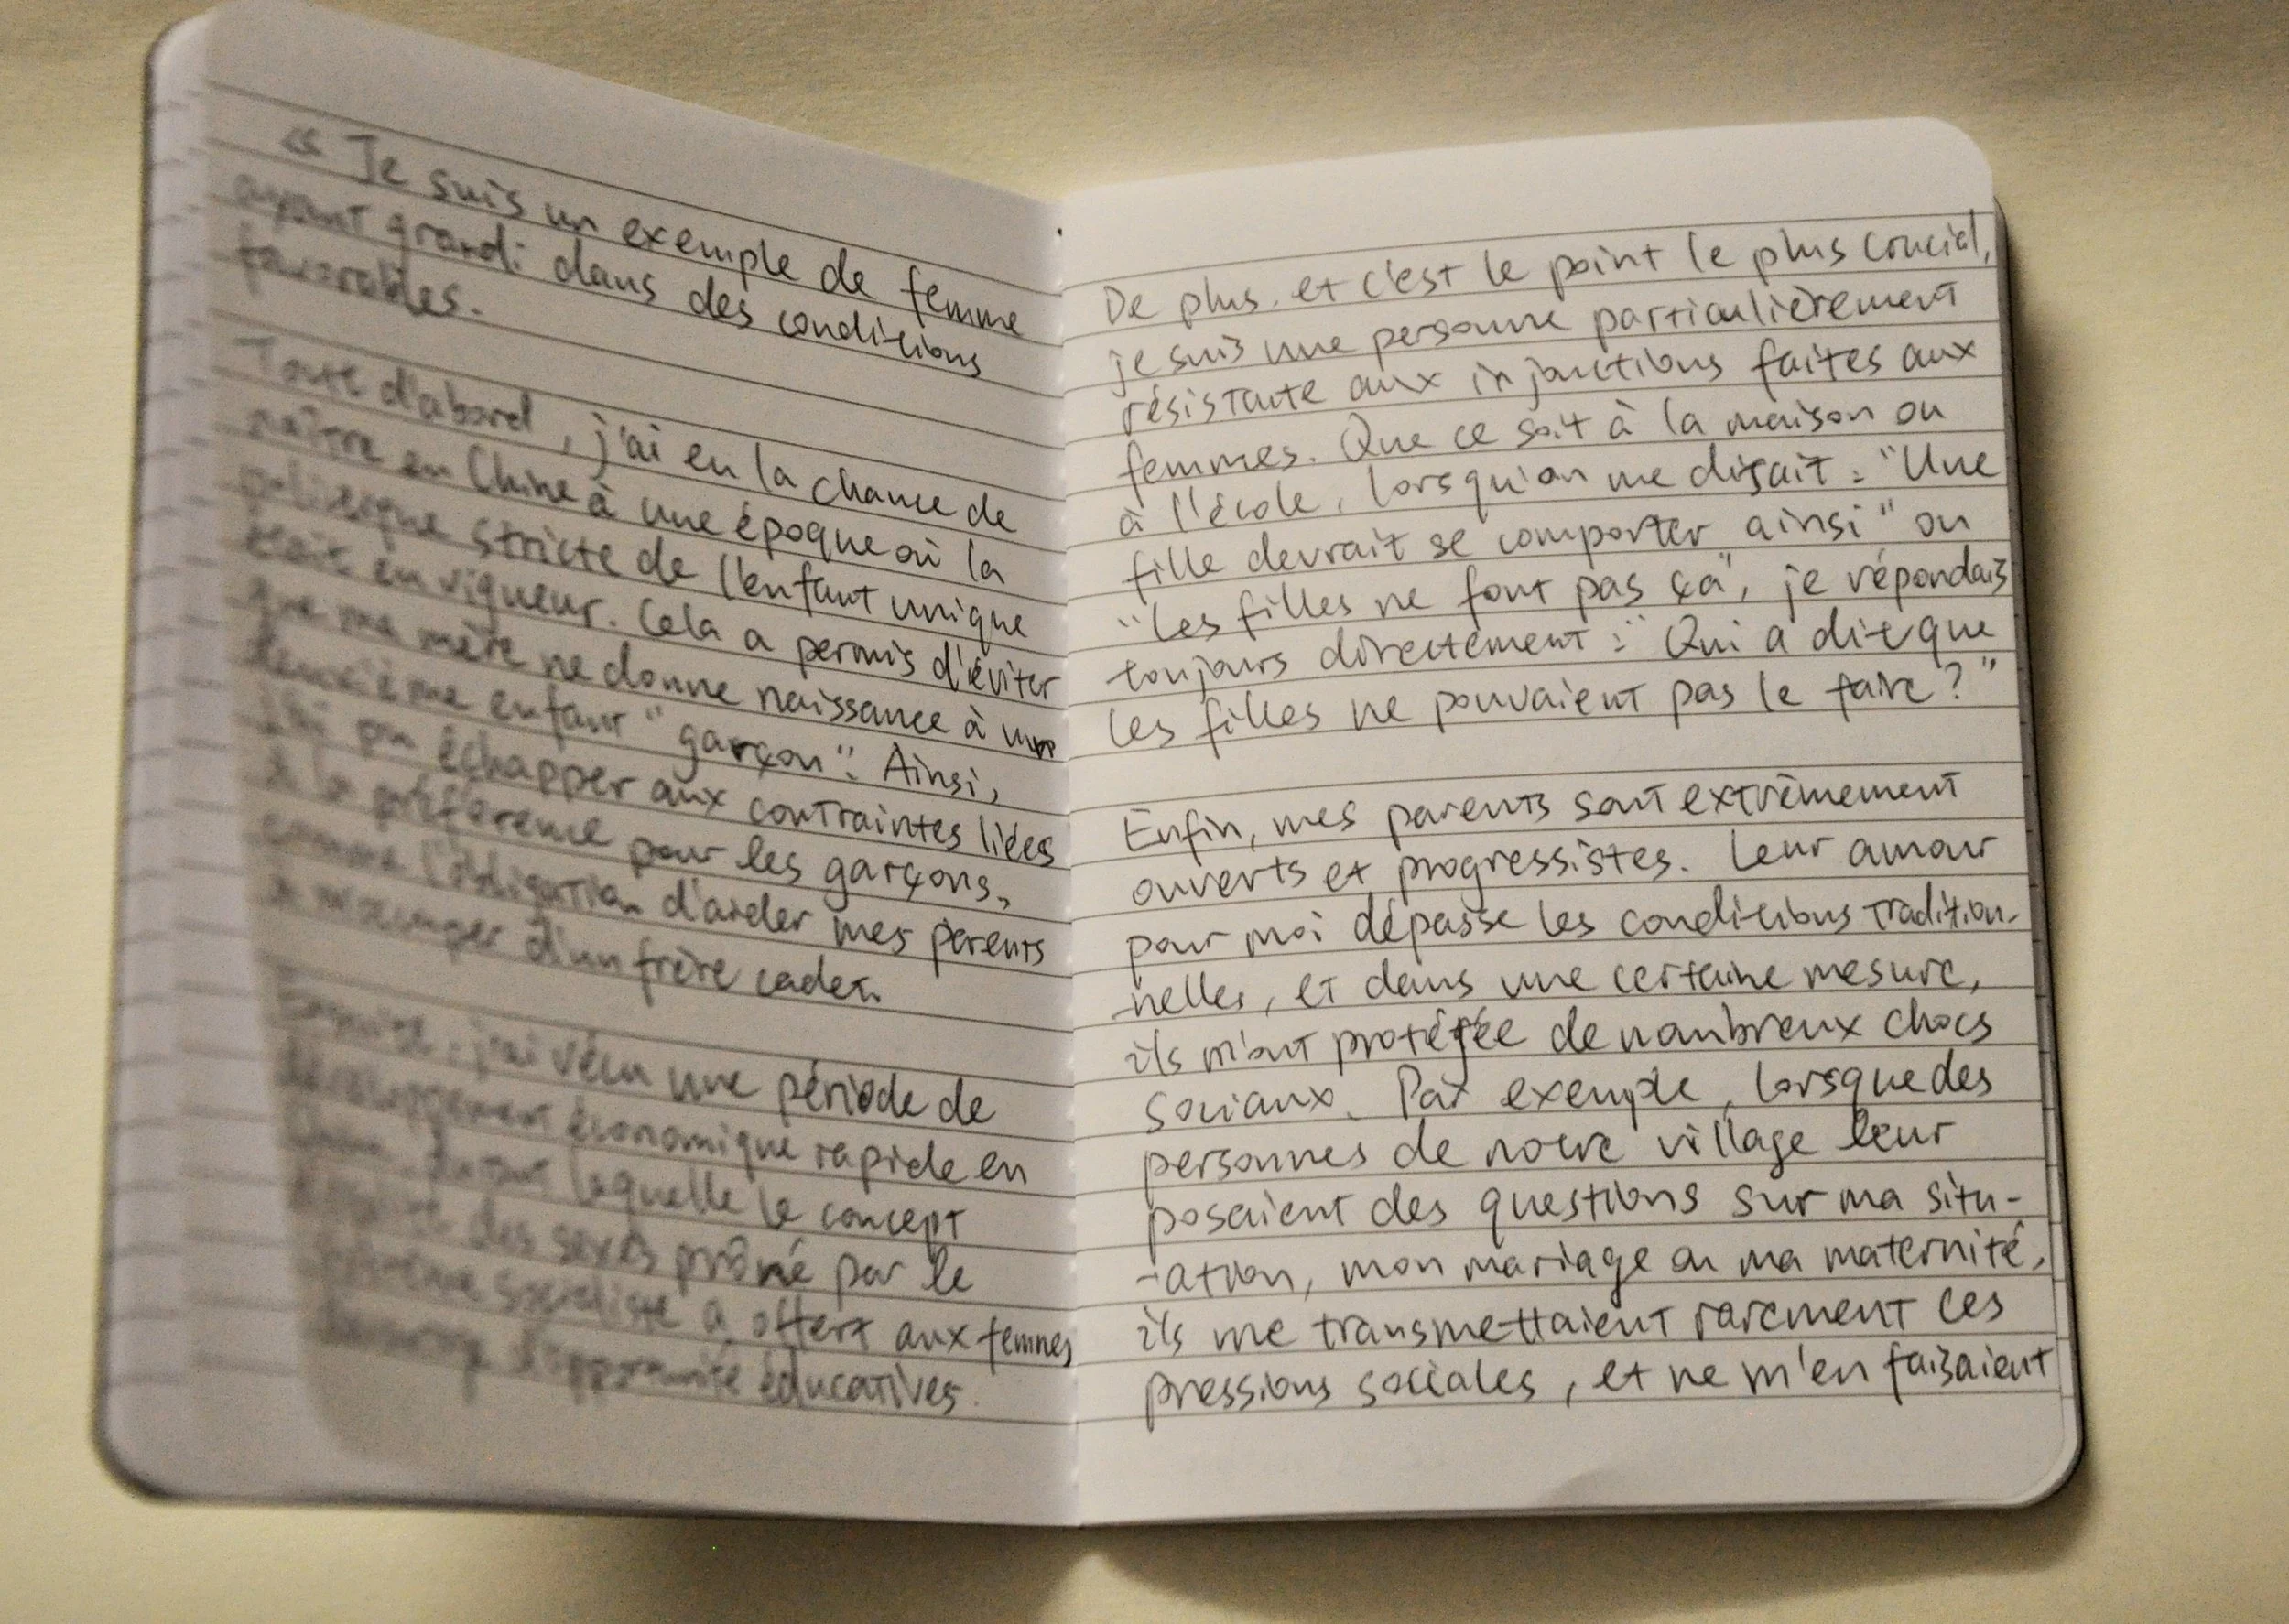 « Je suis un exemple de femme
ayant grandi dans des conditions
favorables.
Tout d'abord, j'ai eu la chance de
naître en Chine à une époque où la
politique stricte de l'enfant unique
était en vigueur. Cela a permis d'éviter
que ma mère ne donne naissance à un
deuxième enfant "garçon". Ainsi,
j'ai pu échapper aux contraintes liées
à la préférence pour les garçons,
comme l'obligation d'aider mes parents
à m'occuper d'un frère cadet.
Ensuite, j'ai vécu une période de
développement économique rapide en
Chine, durant laquelle le concept
des sexes prôné par le
système socialiste a offert aux femmes
beaucoup d'opportunité éducatives.
De plus, et c'est le point le plus crucial,
je suis une personne particulièrement
résistante aux injonctions faites aux
femmes. Que ce soit à la maison ou
à l'école, lorsqu'on me disait : "Une
fille devrait se comporter ainsi" ou
"Les filles ne font pas ça", je répondais
toujours directement : "Qui a dit que
les filles ne pouvaient pas le faire ?"
Enfin, mes parents sont extrêmement
ouverts et progressistes. Leur amour
pour moi dépasse les conditions tradition-
-nelles, et dans une certaine mesure,
ils m'ont protégée de nombreux chocs
sociaux. Par exemple, lorsque des
personnes de notre village leur
posaient des questions sur ma situ-
-ation, mon mariage ou ma maternité,
ils me transmettaient rarement ces
pressions sociales, et ne m'en faisaient